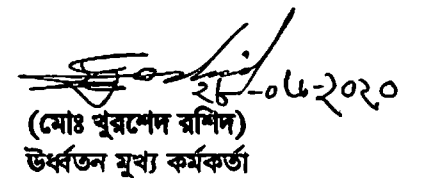 ২৮-০৬-২০২০
(মোঃ খুরশেদ রশিদ)
ঊর্ধ্বতন মুখ্য কর্মকর্তা